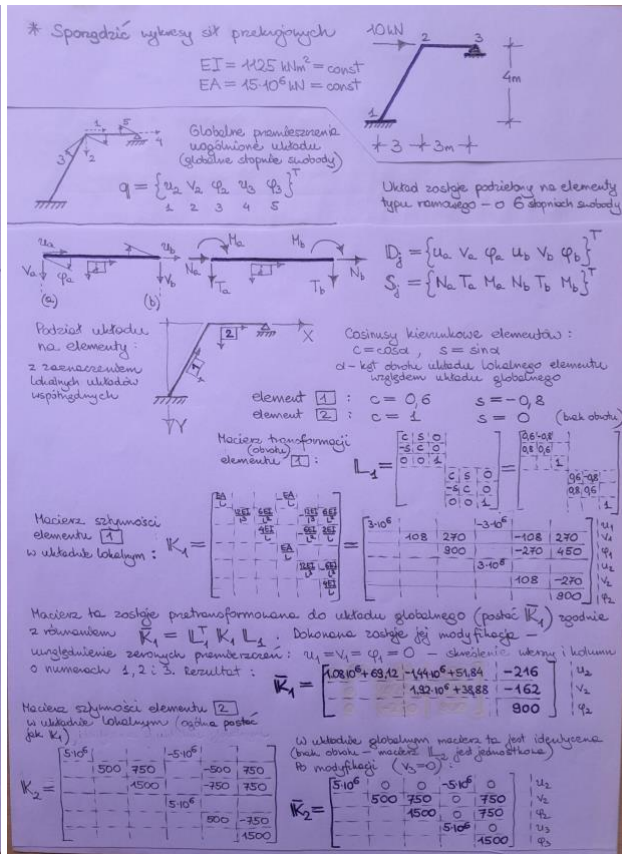 * Sporządzić wykresy sił przekrojowych
EI = 1125 kNm² = const
EA = 15·10⁶ kN = const
10kN
2
3
1
4m
3
3m
1
5
4
2
3
Globalne przemieszczenia
uogólnione układu
(globalne stopnie swobody)
q = {u₂ v₂ φ₂ u₃ φ₃}ᵀ
1 2 3 4 5
Układ zostaje podzielony na elementy
typu ramowego – o 6 stopniach swobody
uₐ
u_b
Vₐ
φₐ
1
V_b
(a)
(b)
Mₐ
M_b
Nₐ
N_b
Tₐ
1
T_b
D_j = {uₐ vₐ φₐ u_b v_b φ_b}ᵀ
S_j = {Nₐ Tₐ Mₐ N_b T_b M_b}ᵀ
Podział układu
na elementy:
z zaznaczeniem
lokalnych układów
współrzędnych
1
2
X
Y
Cosinusy kierunkowe elementów:
c = cosα, s = sinα
α – kąt obrotu układu lokalnego elementu
względem układu globalnego
element 1 : c = 0,6 s = -0,8
element 2 : c = 1 s = 0 (brak obrotu)
Macierz transformacji
(obrotu)
elementu 1 :
L₁ =
c s 0
-s c 0
0 0 1
c s 0
-s c 0
0 0 1
=
0,6 -0,8
0,8 0,6
1
0,6 -0,8
0,8 0,6
1
Macierz sztywności
elementu 1
w układzie lokalnym :
K₁ =
EA/L -EA/L
12EI/L³ 6EI/L² 12EI/L³ 6EI/L²
4EI/L -6EI/L² 2EI/L
EA/L
12EI/L³ -6EI/L²
4EI/L
=
3·10⁶ -3·10⁶ u₁
108 270 -108 270 v₁
900 -270 450 φ₁
3·10⁶ u₂
108 -270 v₂
900 φ₂
Macierz ta zostaje przetransformowana do układu globalnego (postać K̄₁) zgodnie
z równaniem K̄₁ = L₁ᵀ K₁ L₁ ; Dokonana zostaje jej modyfikacja –
uwzględnienie zerowych przemieszczeń: u₁=v₁=φ₁=0 – skreślenie wierszy i kolumn
o numerach 1, 2 i 3. Rezultat :
K̄₁ =
1.08·10⁶+69,12 -1,44·10⁶+51,84 -216 u₂
1.92·10⁶+38,88 -162 v₂
900 φ₂
Macierz sztywności elementu 2
w układzie lokalnym (ogólna postać
jak K₁)
K₂ =
5·10⁶ -5·10⁶
500 750 -500 750
1500 -750 750
5·10⁶
500 -750
1500
W układzie globalnym macierz ta jest identyczna
(brak obrotu – macierz L₂ jest jednostkowa)
Po modyfikacji (v₃=0) :
K̄₂ =
5·10⁶ 0 0 -5·10⁶ 0 u₂
500 750 0 750 v₂
1500 0 750 φ₂
5·10⁶ 0 u₃
1500 φ₃